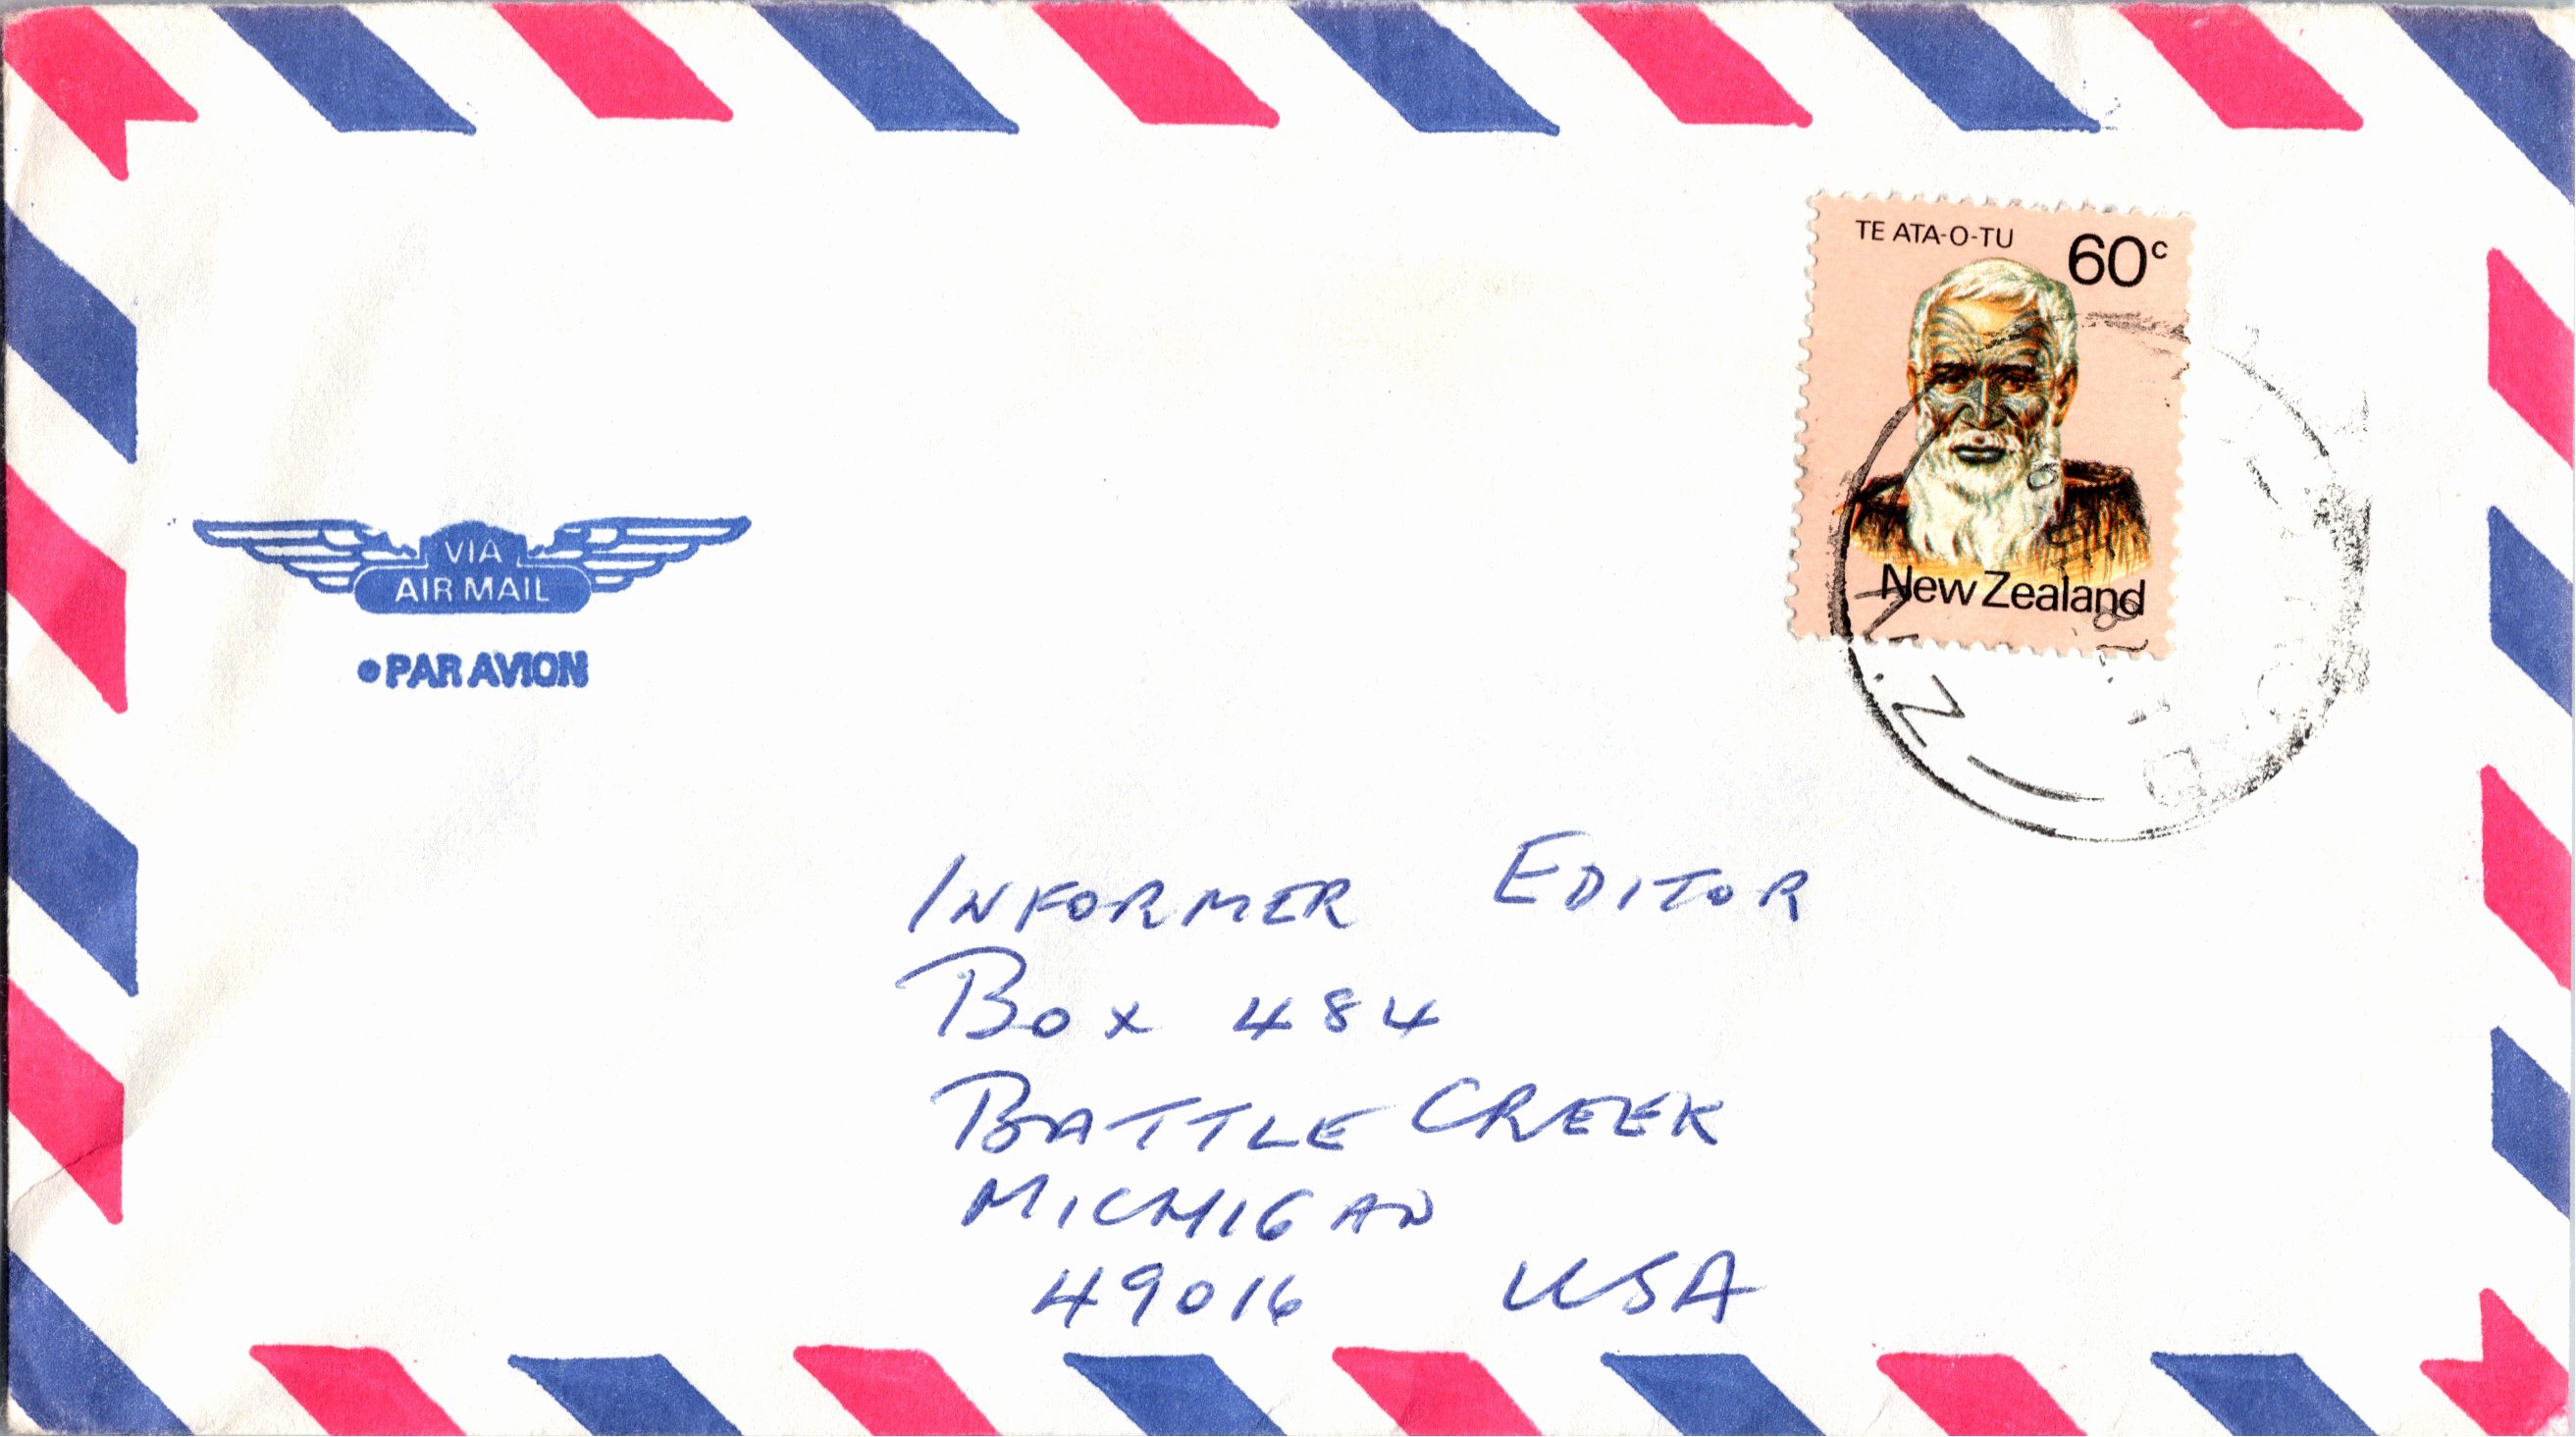 TE ATA-O-TU
60c
New Zealand
VIA
AIR MAIL
PAR AVION
N.Z.
INFORMER EDITOR
BOX 484
BATTLE CREEK
MICHIGAN
49016 USA